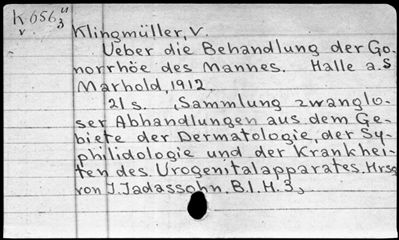 K 656, u
v 3
Klingmüller, V.
Ueber die Behandlung der Go-
norrhöe des Mannes. Halle a.S
Marhold, 1912.
21 s. „Sammlung zwanglo-
ser Abhandlungen aus dem Ge-
biete der Dermatologie, der Sy-
philidologie und der Krankhei-
ten des Urogenitalapparates. Hrsg
von J. Jadassohn. B.I. H. 3,